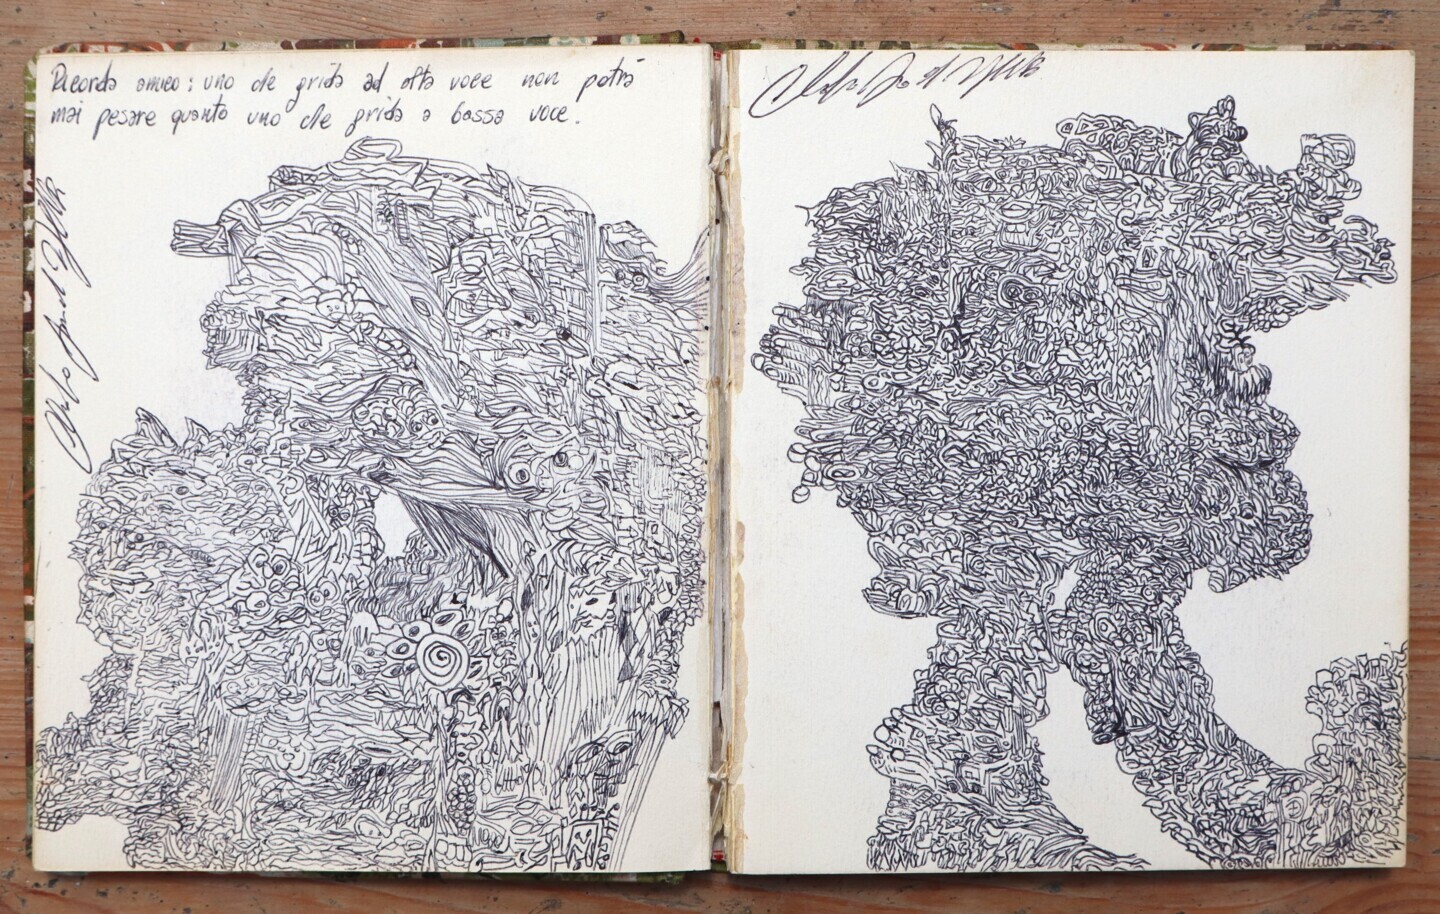 Ricorda amico: uno che grida ad alta voce non potrà
mai pesare quanto uno che grida a bassa voce.